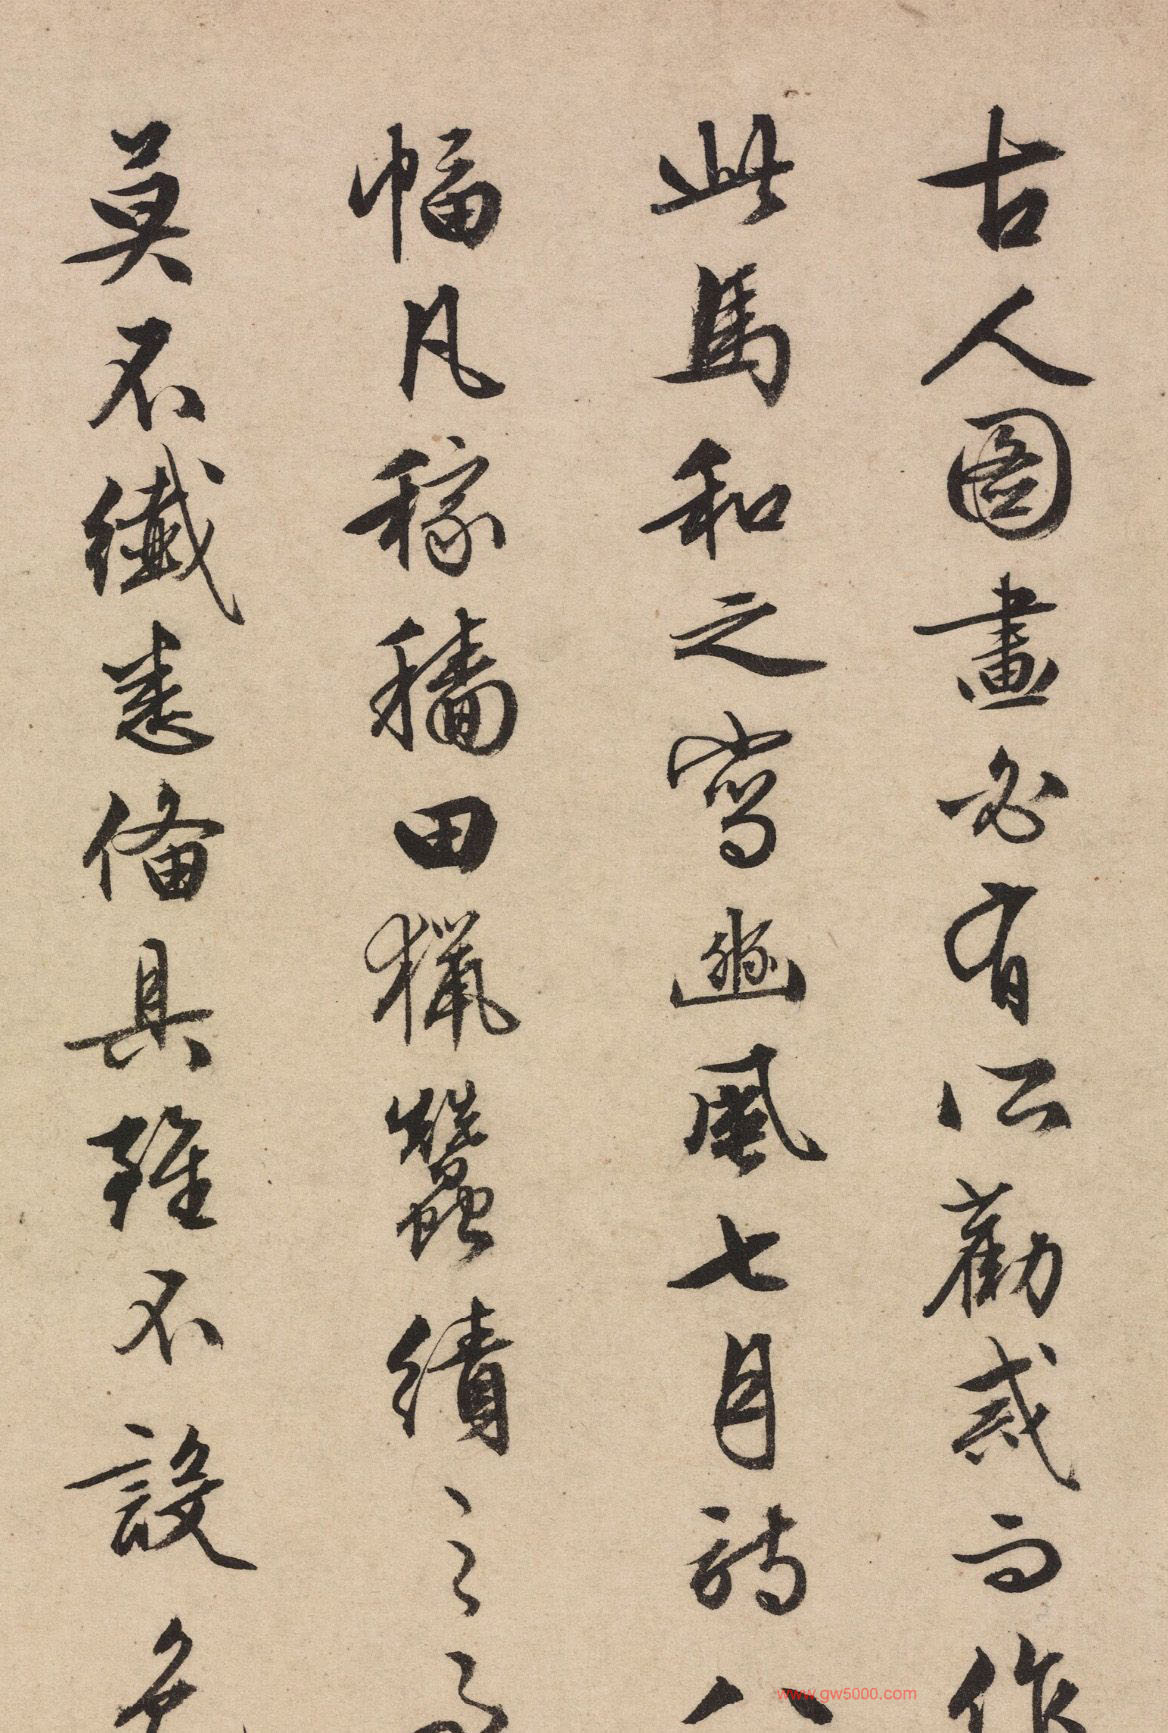 古人圖畫必有所勸戒而作
此馬和之寫豳風七月詩八
幅凡稼穡田獵蠶績之事
莫不纖悉備具雖不設色
www.gw5000.com